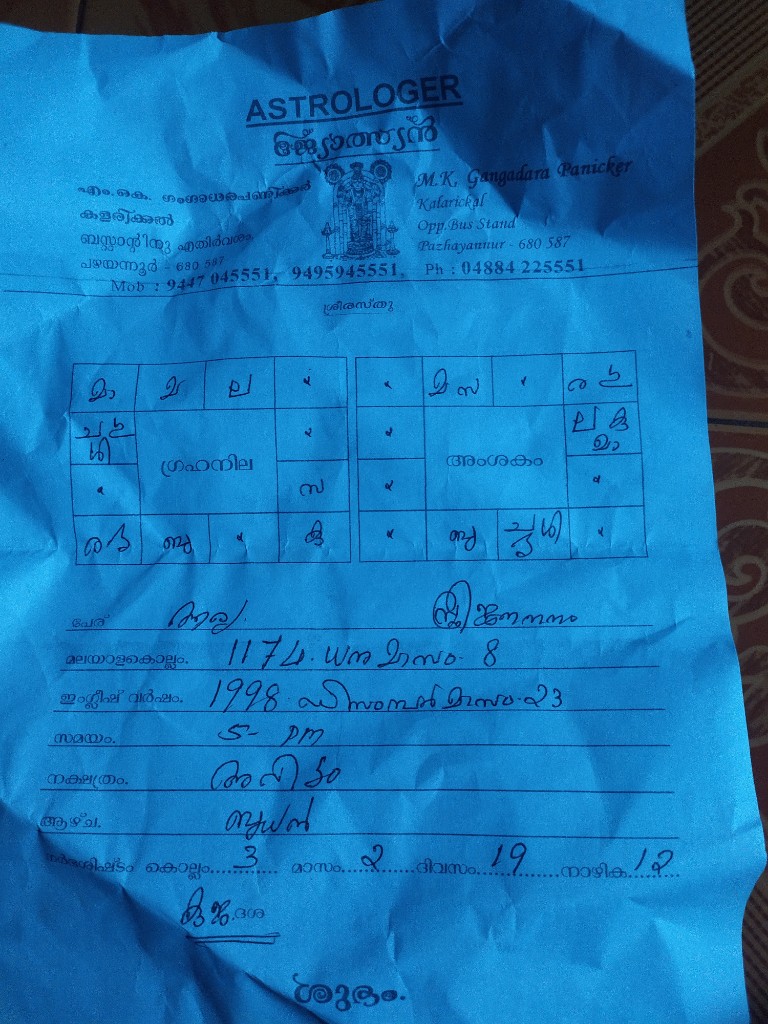 ASTROLOGER
ജ്യോത്സ്യൻ
എം.കെ. ഗംഗാധരപണിക്കർ
കളരിക്കൽ
ബസ്സ്റ്റാന്റിനു എതിർവശം
പഴയന്നൂർ - 680 587
M.K. Gangadara Panicker
Kalarickal
Opp.Bus Stand
Pazhayannur - 680 587
Mob : 9447 045551, 9495945551, Ph : 04884 225551
ശ്രീരസ്തു
മാ ല
മ സ
ഗ്രഹനില
അംശകം
സ
ബു കു
ബു
പേര് ആര്യ. സ്ത്രീജനനം
മലയാളകൊല്ലം. 1174. ധനു മാസം. 8
ഇംഗ്ലീഷ് വർഷം. 1998. ഡിസംമ്പർ മാസം. 23
സമയം. 5- pm
നക്ഷത്രം. അവിട്ടം
ആഴ്ച. ബുധൻ
കൊല്ലം 3 മാസം 2 ദിവസം 19 നാഴിക 12
കുജ ദശ
ശുഭം.